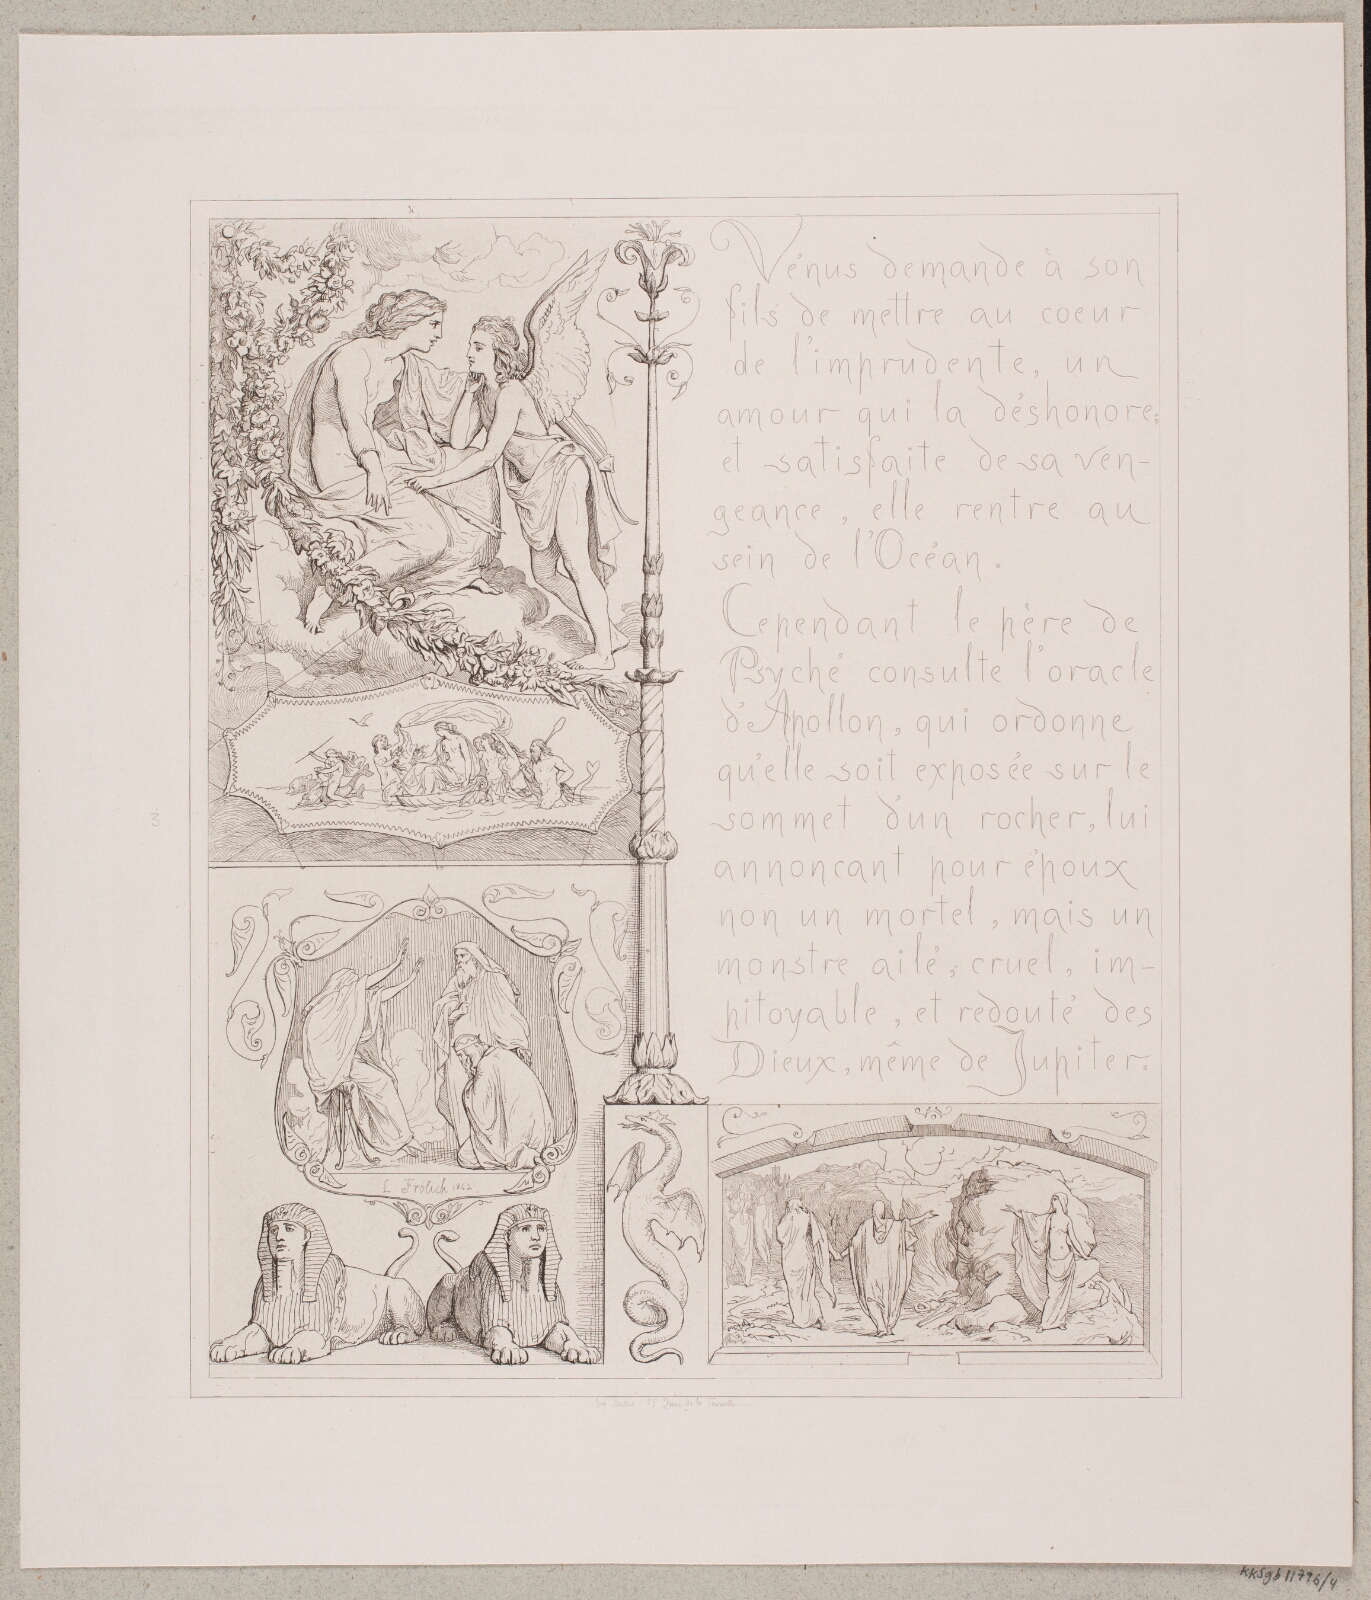 Vénus demande à son
fils de mettre au coeur
de l'imprudente, un
amour qui la déshonore;
et satisfaite de sa ven-
geance, elle rentre au
sein de l'Océan.
Cependant le père de
Psyché consulte l'oracle
d'Apollon, qui ordonne
qu'elle soit exposée sur le
sommet d'un rocher, lui
annonçant pour époux
non un mortel, mais un
monstre ailé, cruel, im-
pitoyable, et redouté des
Dieux, même de Jupiter.
L Frölich 1862
3
KKSgb11796/4